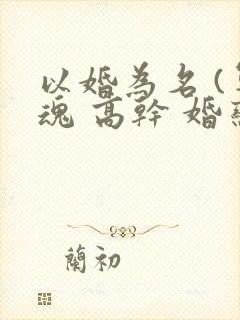 以婚為名(
魂 高幹 婚
蘭初